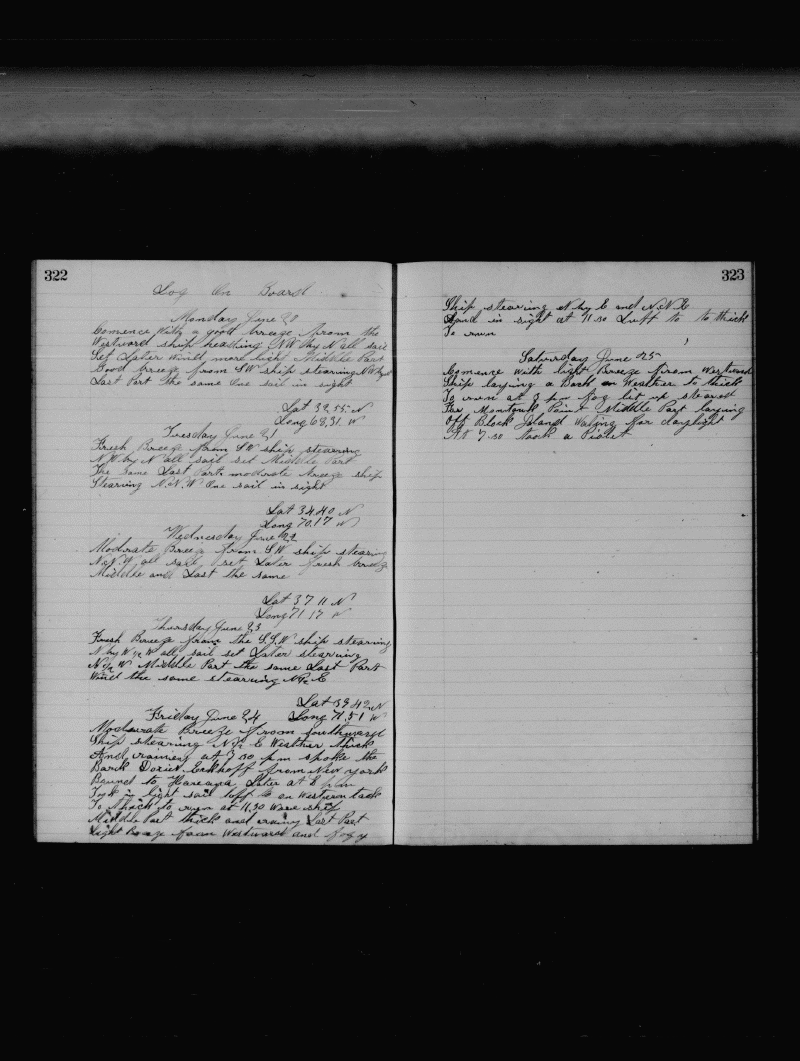 322
Log On Board
Monday June 20
Comence with a good breeze from the
Westward ship heading NW by N all sail
Set Later wind more light Middle Part
Good breeze from SW ship stearing NW by N
Last Part the same One sail in sight
Lat 39,55 N
Long 68,31 W
Tuesday June 21
Fresh Breeze from SW ship stearing
N.W by N all sail set Middle Part
The Same Last Part moderate breeze ship
Stearing N.N.W One sail in sight
Lat 34,40 N
Long 70,17 W
Wednesday June 22
Moderate Breeze from SW ship stearing
N.N.W all sail set Later fresh breeze
Middle and Last the same
Lat 37 11 N
Long 71 17 W
Thursday June 23
Fresh Breeze from the S.S.W ship stearing
N by W 1/2 W all sail set Later stearing
N 1/2 W Middle Part the same Last Part
Wind the same stearing N 1/2 E
Lat 39 42 N
Friday June 24 Long 71,51 W
Moderate Breeze from
Ship stearing N 1/2 E Weather thick
And raining at 7.30 pm spoke the
Bark from New york
Bound to Later at 8 pm
Took in light sail luff to on Western tack
To thick to run at 11.30 Wore ship
Middle Part thick and rainy Last Part
Light Breeze from Westward and fogy
323
Ship stearing N by E and N.N.E
Land in sight at 11.30 Luff to to thick
To run
Saturday June 25
Comence with light Breeze from Westward
Ship laying a Back on Weather to thick
To run at 3 pm fog let up steared
For Montouk Point Middle Part laying
Off Block Island Waiting for daylight
At 7.30 took a Pilot